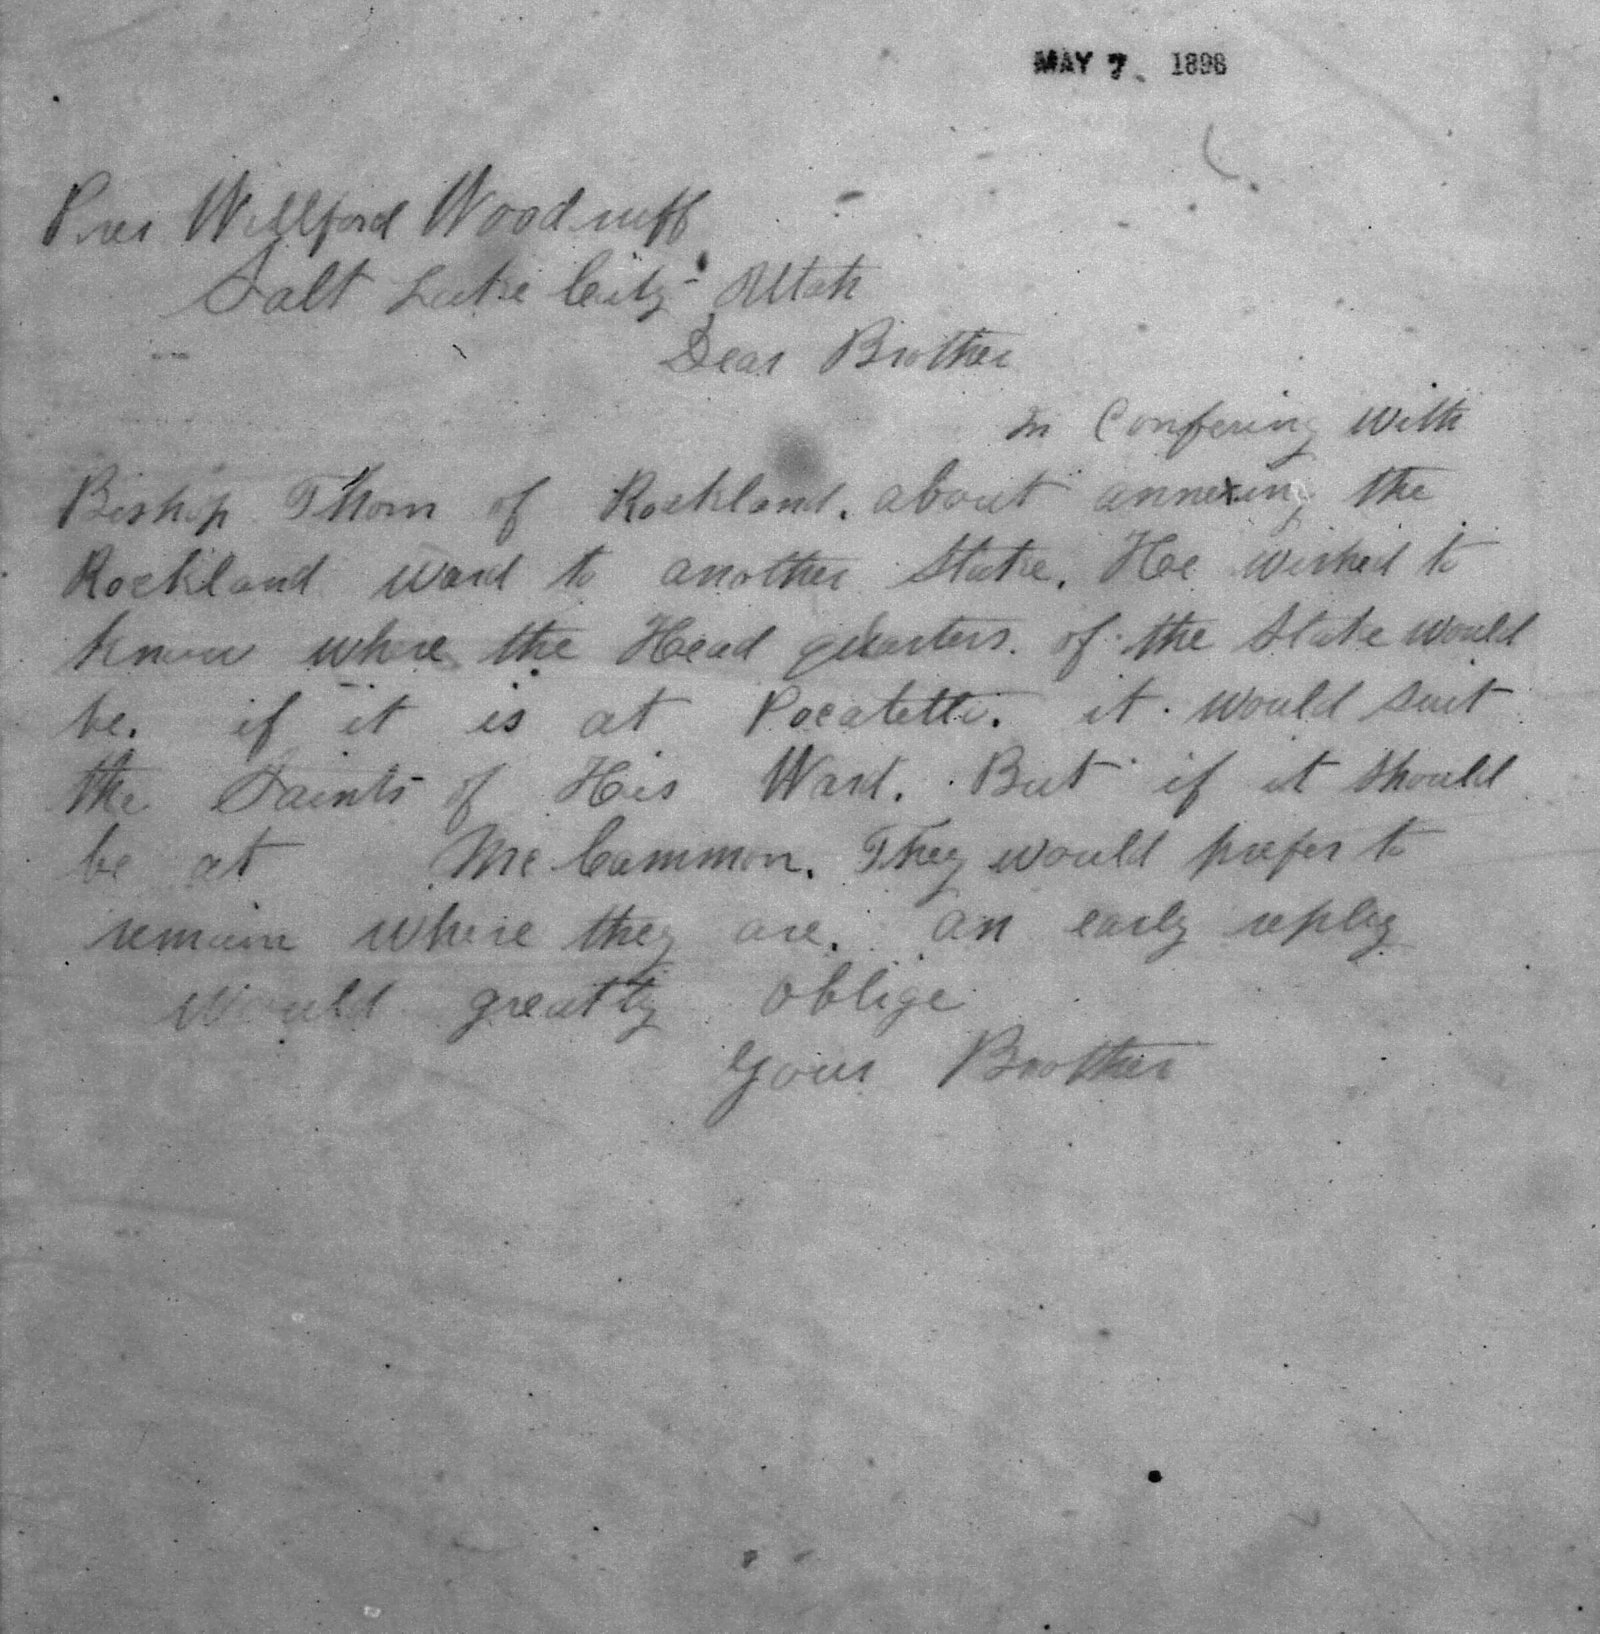 MAY 7 1898
Pres Willford Woodruff
Salt Lake City Utah
Dear Brother
In Confering With
Bishop Thorn of Rockland. about annexing the
Rockland ward to another Stake. He wished to
know where the Head quarters. of the Stake would
be. if it is at Pocatello. it would suit
the Saints of His Ward. But if it should
be at McCammon. They would prefer to
remain where they are. an early reply
would greatly oblige
Your Brother